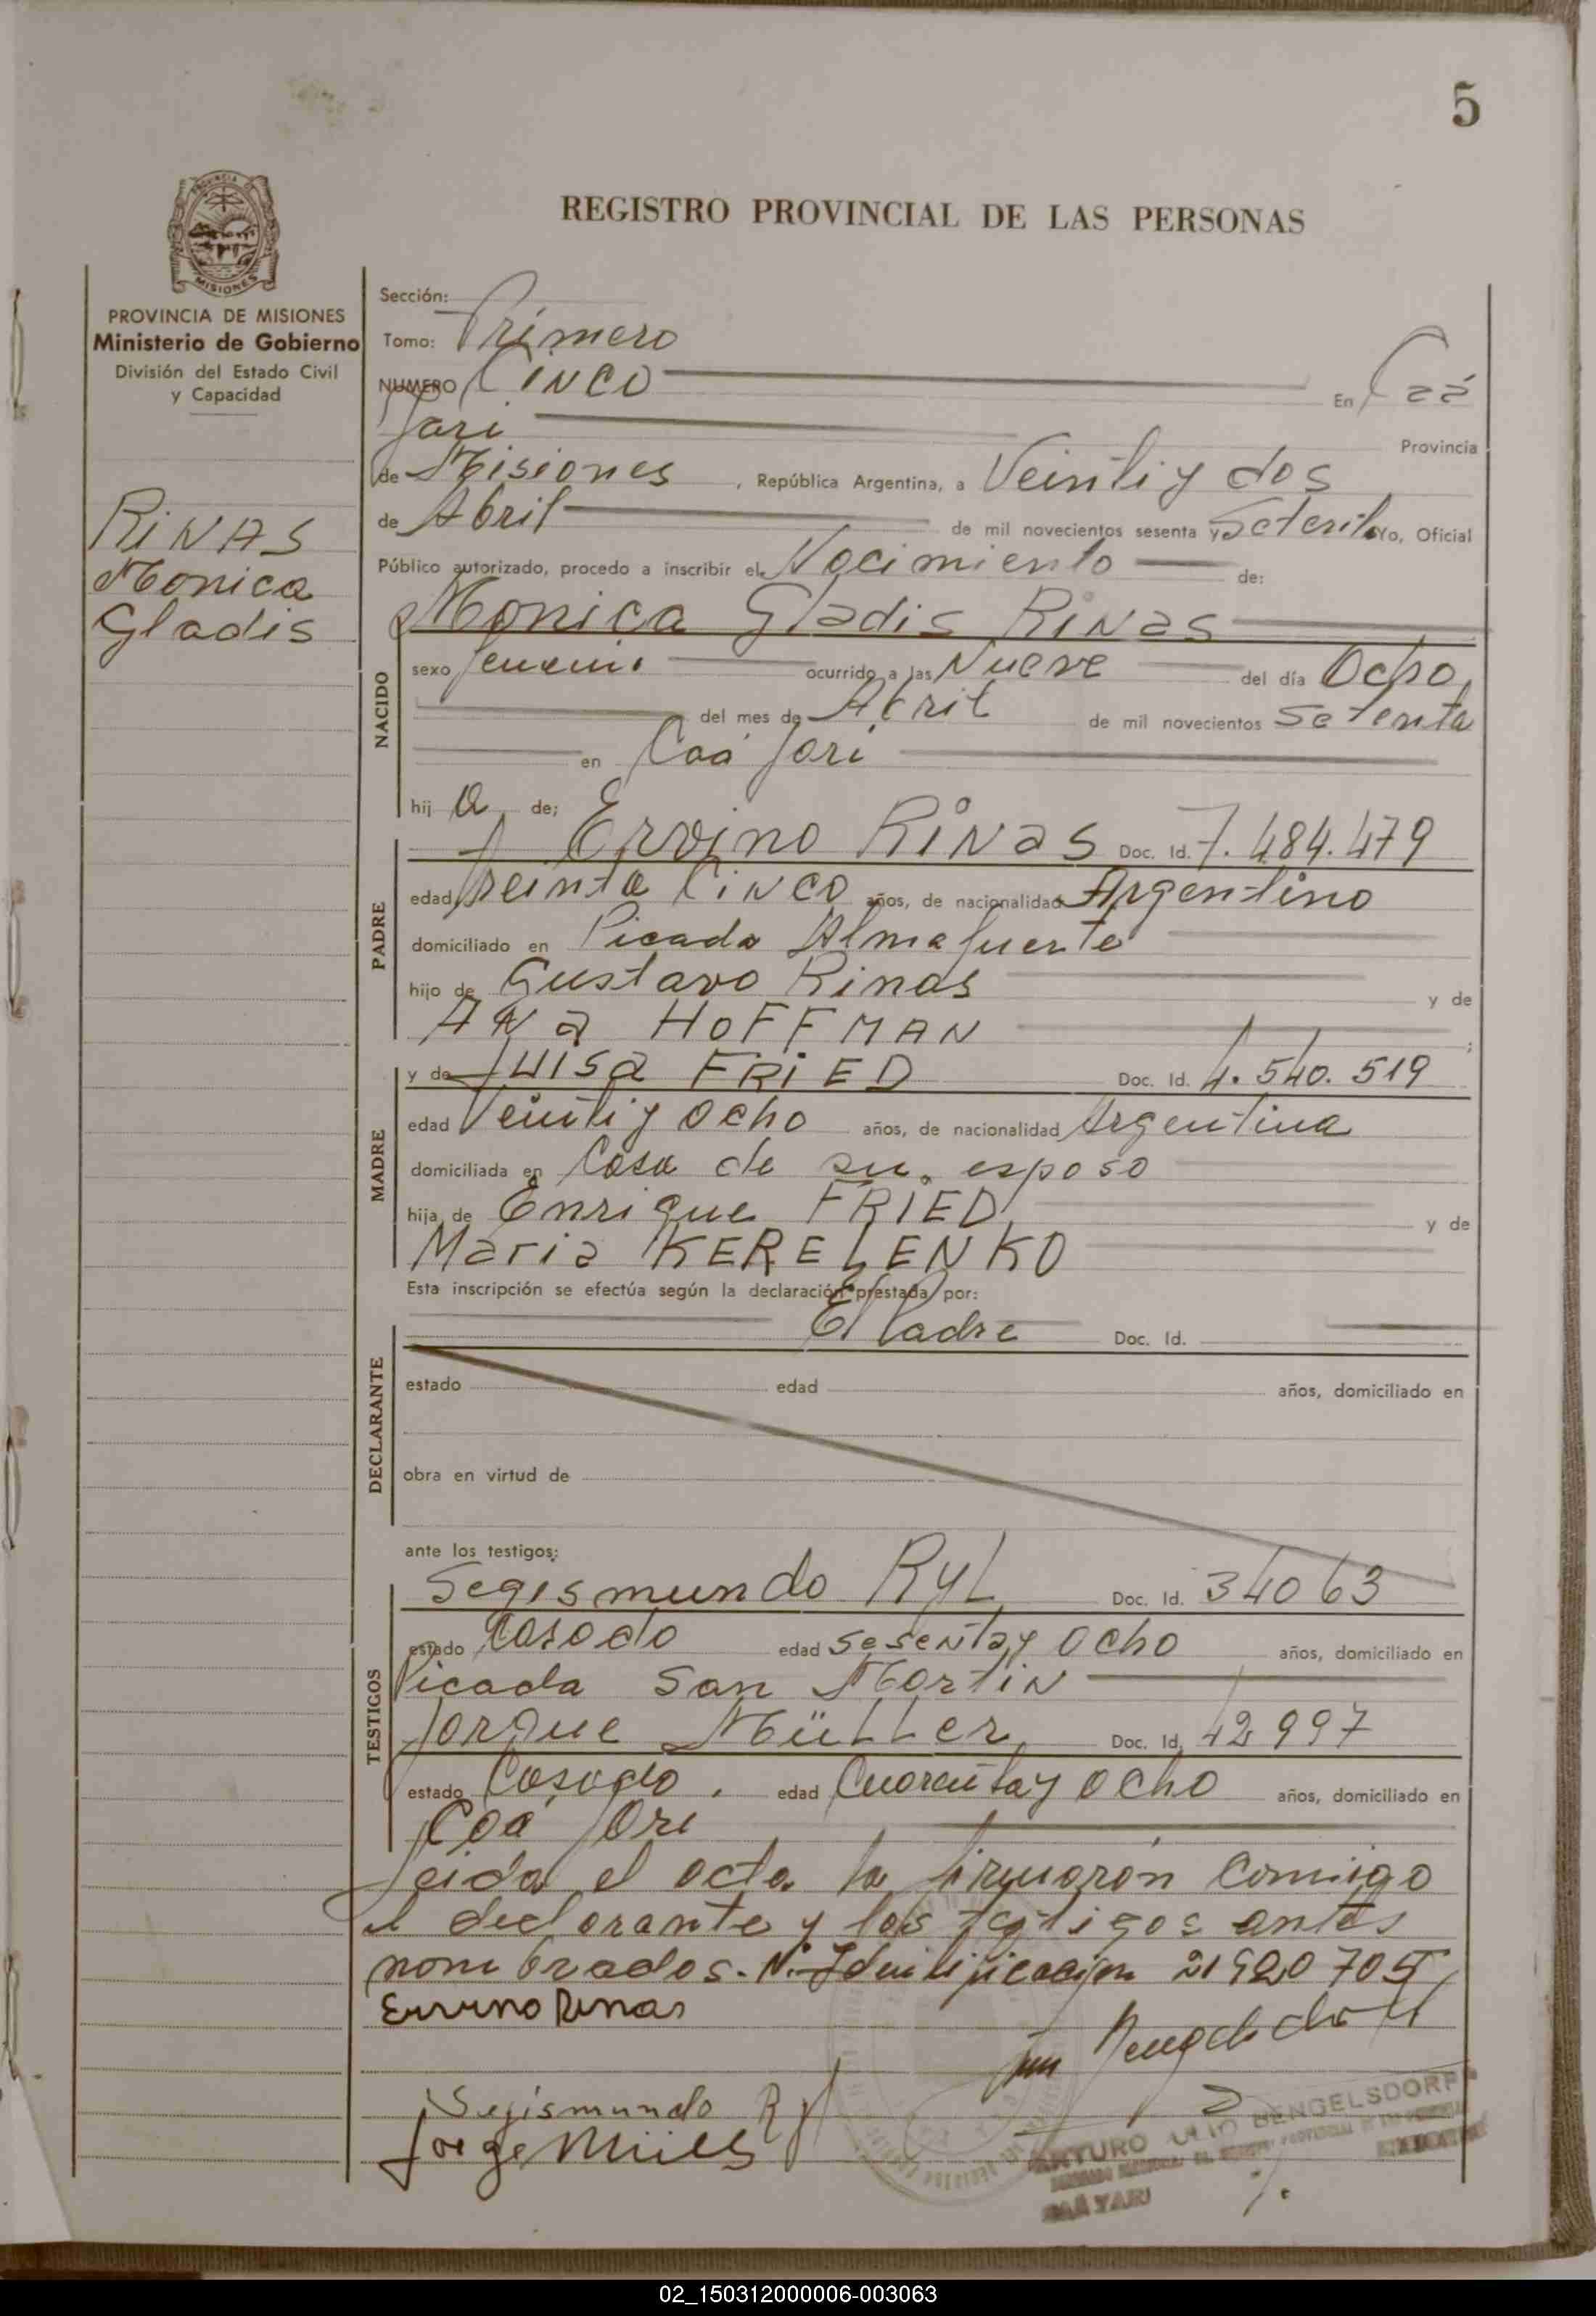 5
REGISTRO PROVINCIAL DE LAS PERSONAS
PROVINCIA DE MISIONES
Ministerio de Gobierno
División del Estado Civil
y Capacidad
RINAS
Monica
Gladis
Sección:
Tomo: Primero
NUMERO Cinco En Caá
Jari Provincia
de Misiones , República Argentina, a Veinti y dos
de Abril de mil novecientos sesenta y Setenta Yo, Oficial
Público autorizado, procedo a inscribir el Nacimiento de:
NACIDO
Monica Gladis Rinas
sexo femeni. ocurrido a las Nueve del día Ocho
del mes de Abril de mil novecientos Setenta
en Caá Jari
hij a de;
PADRE
Ervino Rinas Doc. Id. 7.484.479
edad treinta Cinco años, de nacionalidad Argentino
domiciliado en Picada Almafuerte
hijo de Gustavo Rinas y de
Ana HOFFMAN ;
MADRE
y de Luisa FRIED Doc. Id. 4.540.519
edad Veinti y ocho años, de nacionalidad Argentina
domiciliada en Casa de su esposo
hija de Enrique FRIED y de
Maria KERELENKO
Esta inscripción se efectúa según la declaración prestada por:
El Padre Doc. Id.
DECLARANTE
estado edad años, domiciliado en
obra en virtud de
ante los testigos:
TESTIGOS
Segismundo Ryl Doc. Id. 34063
estado Casado edad sesenta y ocho años, domiciliado en
Picada San Martin
Jorque Müller Doc. Id. 42997
estado Casado . edad Cuarenta y ocho años, domiciliado en
Caá Jari
Leida el acta la firmarón Comigo
el declarante y los testigos antes
nombrados. N° Identificacion 21920705
Ervino Rinas
Segismundo Ryl
Jorge Müller
ARTURO JULIO BENGELSDORFF
CAA YARI
02_150312000006-003063